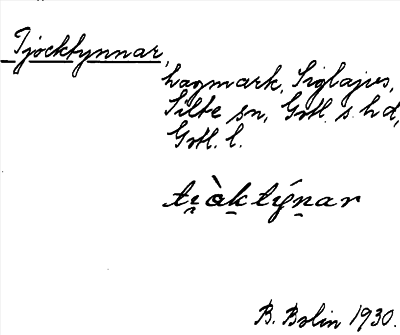 Tjocktynnar,
hagmark, Siglajvs,
Silte sn, Gotl. s. hd,
Gotl. l.
ti̯òk týnar
B. Bolin 1930.